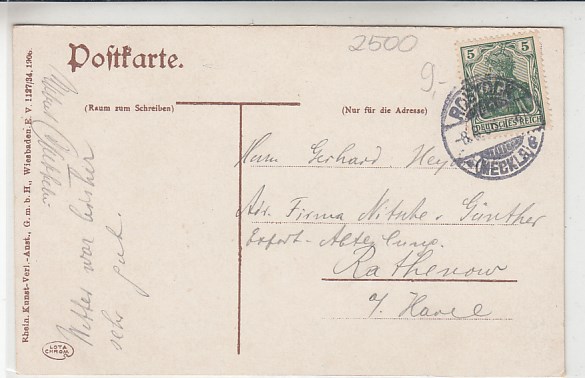 Rhein. Kunst-Verl.-Anst., G. m. b. H., Wiesbaden, E. V. 1127/34, 1906.
Postkarte.
2500
9,-
5 5
DEUTSCHES REICH
ROSTOCK
(MECKLB)
(Raum zum Schreiben)
(Nur für die Adresse)
Wetter war bisher
sehr gut.
Herrn Gerhard
Adr. Firma Nitsche & Günther
Export-Abteilung.
Rathenow
a/ Havel
LOTA
CHROM